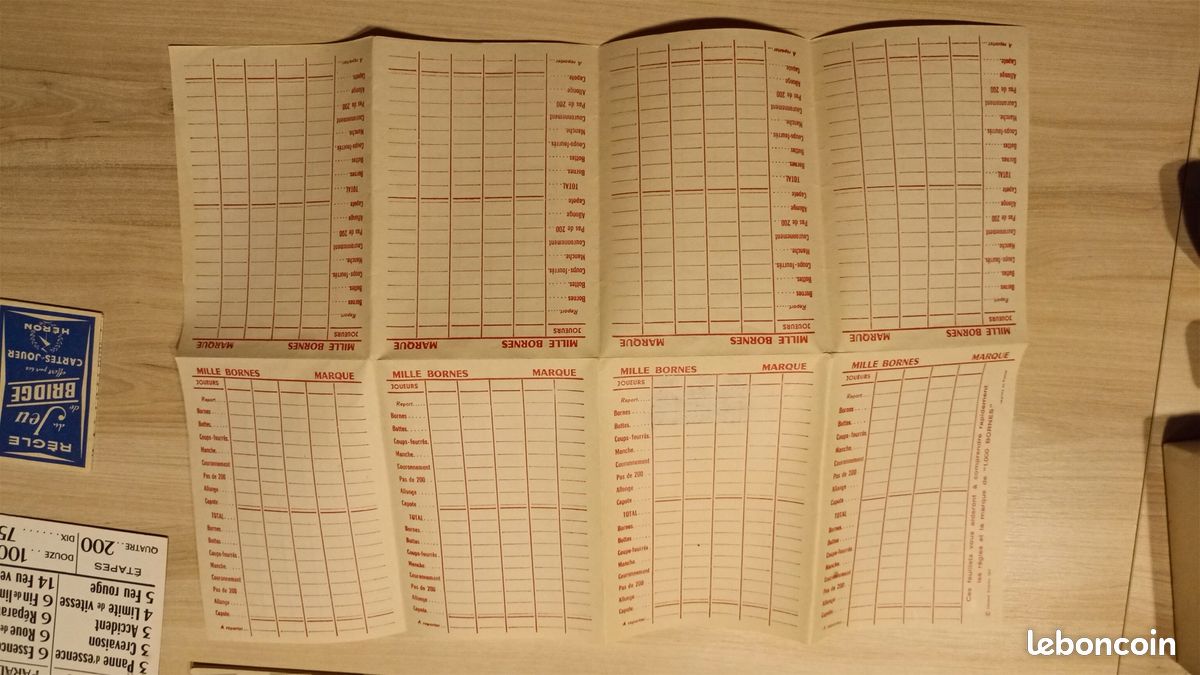 MILLE BORNES MARQUE
JOUEURS
Report
Bornes
Bottes
Coups-fourrés
Manche
Couronnement
Pas de 200
Allonge
Capote
TOTAL
Bornes
Bottes
Coups-fourrés
Manche
Couronnement
Pas de 200
Allonge
Capote
A reporter
MILLE BORNES MARQUE
JOUEURS
Report
Bornes
Bottes
Coups-fourrés
Manche
Couronnement
Pas de 200
Allonge
Capote
TOTAL
Bornes
Bottes
Coups-fourrés
Manche
Couronnement
Pas de 200
Allonge
Capote
A reporter
MILLE BORNES MARQUE
JOUEURS
Report
Bornes
Bottes
Coups-fourrés
Manche
Couronnement
Pas de 200
Allonge
Capote
TOTAL
Bornes
Bottes
Coups-fourrés
Manche
Couronnement
Pas de 200
Allonge
Capote
A reporter
MILLE BORNES MARQUE
JOUEURS
Report
Bornes
Bottes
Coups-fourrés
Manche
Couronnement
Pas de 200
Allonge
Capote
TOTAL
Bornes
Bottes
Coups-fourrés
Manche
Couronnement
Pas de 200
Allonge
Capote
A reporter
MILLE BORNES MARQUE
JOUEURS
Report
Bornes
Bottes
Coups-fourrés
Manche
Couronnement
Pas de 200
Allonge
Capote
TOTAL
Bornes
Bottes
Coups-fourrés
Manche
Couronnement
Pas de 200
Allonge
Capote
A reporter
MILLE BORNES MARQUE
JOUEURS
Report
Bornes
Bottes
Coups-fourrés
Manche
Couronnement
Pas de 200
Allonge
Capote
TOTAL
Bornes
Bottes
Coups-fourrés
Manche
Couronnement
Pas de 200
Allonge
Capote
A reporter
MILLE BORNES MARQUE
JOUEURS
Report
Bornes
Bottes
Coups-fourrés
Manche
Couronnement
Pas de 200
Allonge
Capote
TOTAL
Bornes
Bottes
Coups-fourrés
Manche
Couronnement
Pas de 200
Allonge
Capote
A reporter
MILLE BORNES MARQUE
JOUEURS
Report
Bornes
Bottes
Coups-fourrés
Manche
Couronnement
Pas de 200
Allonge
Capote
TOTAL
Bornes
Bottes
Coups-fourrés
Manche
Couronnement
Pas de 200
Allonge
Capote
A reporter
Ces feuillets vous aideront à comprendre rapidement
les règles et la marque de "1.000 BORNES"
RÈGLE
du Jeu
de
BRIDGE
offert par les
CARTES-JOUER
HÉRON
3 Panne d'essence
3 Crevaison
3 Accident
4 Limite de vitesse
5 Feu rouge
6 Essence
6 Roue de
6 Répara
6 Fin de lim
14 Feu ve
ÉTAPES
QUATRE.. 200
DOUZE .. 100
DIX...... 75
leboncoin